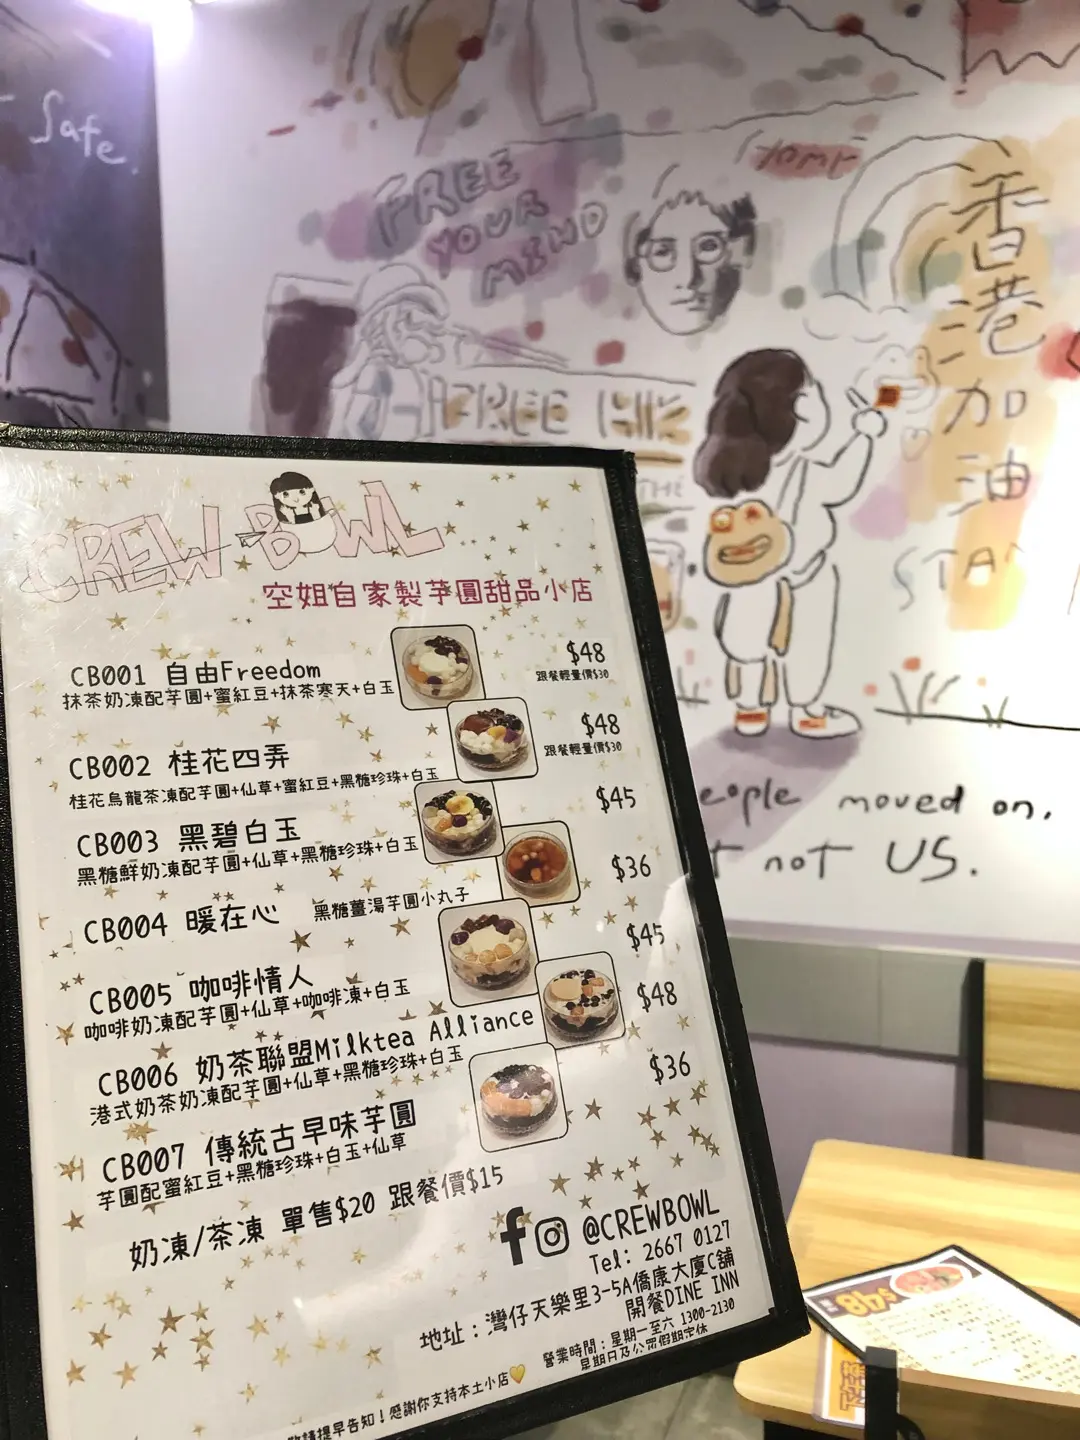 Safe.
FREE
YOUR
MIND
香港加油
FREE HK
THE
STA
eople moved on,
t not US.
CREW BOWL
空姐自家製芋圓甜品小店
CB001 自由Freedom $48
抹茶奶凍配芋圓+蜜紅豆+抹茶寒天+白玉 跟餐輕量價$30
CB002 桂花四弄 $48
桂花烏龍茶凍配芋圓+仙草+蜜紅豆+黑糖珍珠+白玉 跟餐輕量價$30
CB003 黑碧白玉 $45
黑糖鮮奶凍配芋圓+仙草+黑糖珍珠+白玉
CB004 暖在心 黑糖薑湯芋圓小丸子 $36
CB005 咖啡情人 $45
咖啡奶凍配芋圓+仙草+咖啡凍+白玉
CB006 奶茶聯盟Milktea Alliance $48
港式奶茶奶凍配芋圓+仙草+黑糖珍珠+白玉
CB007 傳統古早味芋圓 $36
芋圓配蜜紅豆+黑糖珍珠+白玉+仙草
奶凍/茶凍 單售$20 跟餐價$15
@CREWBOWL
Tel: 2667 0127
地址：灣仔天樂里3-5A僑康大廈C舖
開餐DINE INN
營業時間：星期一至六 1300-2130
星期日及公眾假期定休
敬請提早告知！感謝你支持本土小店
$48